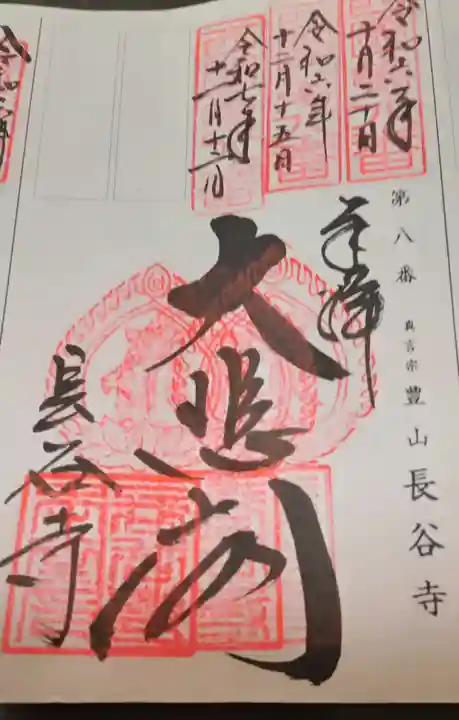 令和六年
十月二十日
令和六年
十二月十五日
令和七年
十一月十二日
第八番 真言宗 豊山長谷寺
奉拝
大悲閣
長谷寺